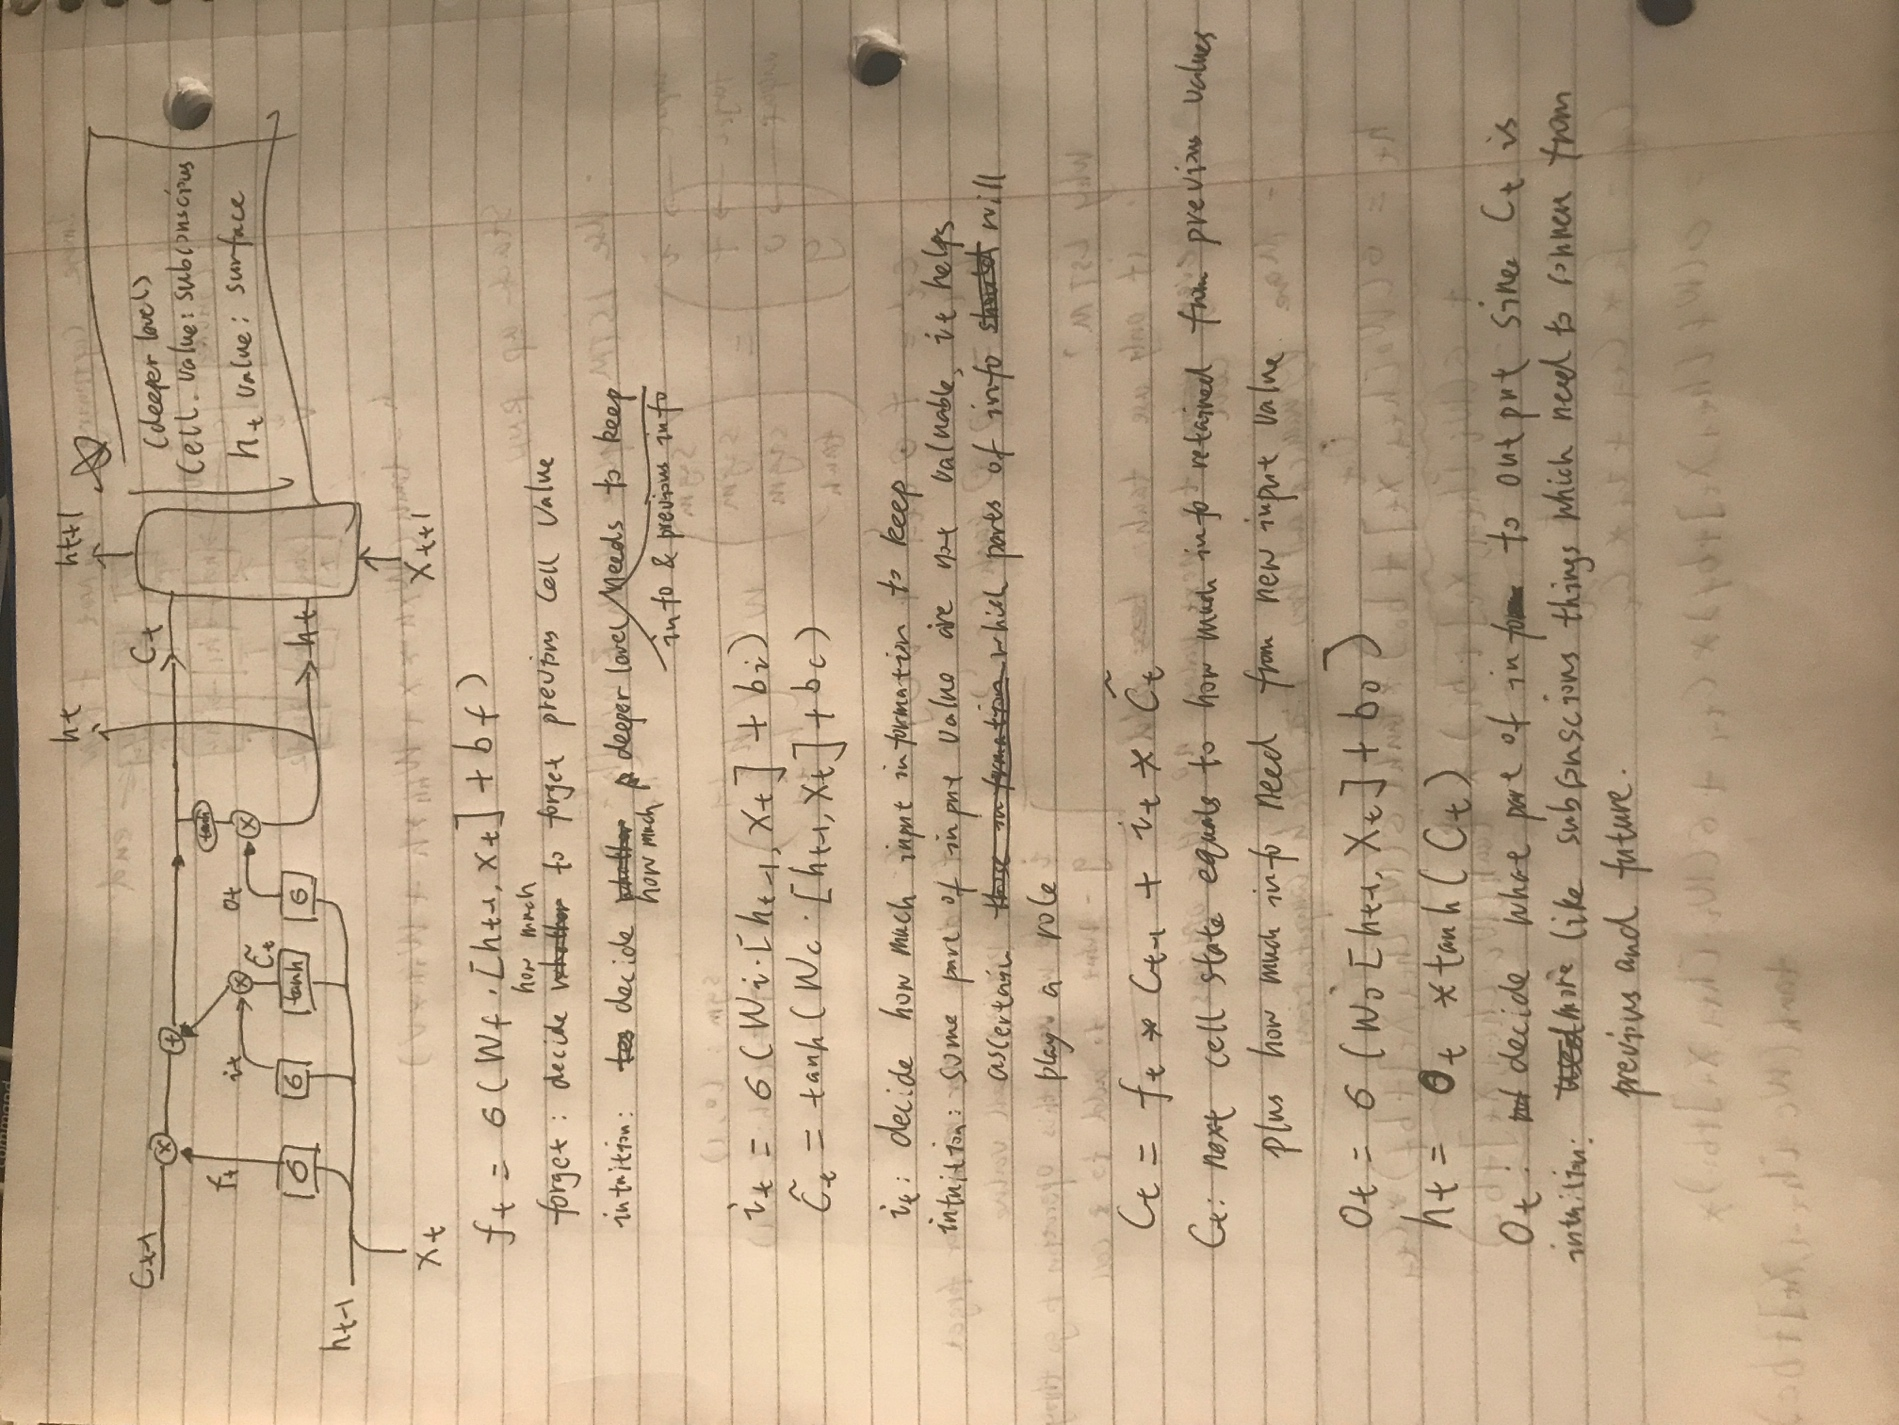 ht
ht+1
Ct-1
Ct
ft
it
C̃t
ot
tanh
σ
σ
tanh
σ
ht-1
ht
Xt
Xt+1
(deeper level)
Cell value: subconscious
ht value: surface
ft = σ(Wf·[ht-1, Xt] + bf)
how much
forget: decide whether to forget previous cell value
intuition: decide whether deeper level needs to keep
how much
info & previous info
it = σ(Wi·[ht-1, Xt] + bi)
C̃t = tanh(Wc·[ht-1, Xt] + bc)
it: decide how much input information to keep.
intuition: some part of input value are not valuable, it helps
ascertain those information which parts of info should will
play a role
Ct = ft * Ct-1 + it * C̃t
Ct: next cell state equals to how much info retained from previous values
plus how much info need from new input value
Ot = σ(Wo[ht-1, Xt] + bo)
ht = Ot * tanh(Ct)
Ot: decide what part of info to output since Ct is
intuition: more like subconscious things which need to from
previous and future.